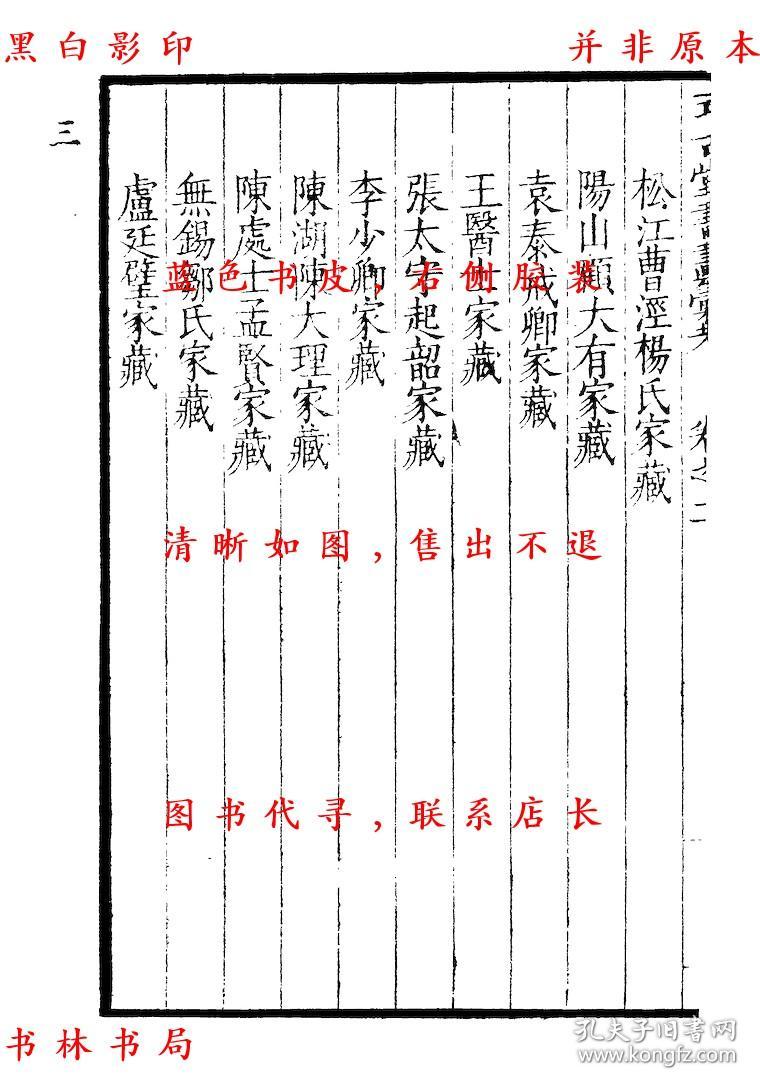 黑白影印
并非原本
松江曹涇楊氏家藏
陽山顧大有家藏
袁泰戒卿家藏
王醫士家藏
張太守起韶家藏
李少卿家藏
陳湖陳大理家藏
陳處士孟賢家藏
無錫鄒氏家藏
盧廷璧家藏
三
蓝色书皮，右侧胶装
清晰如图，售出不退
图书代寻，联系店长
书林书局
孔夫子旧书网
www.kongfz.com